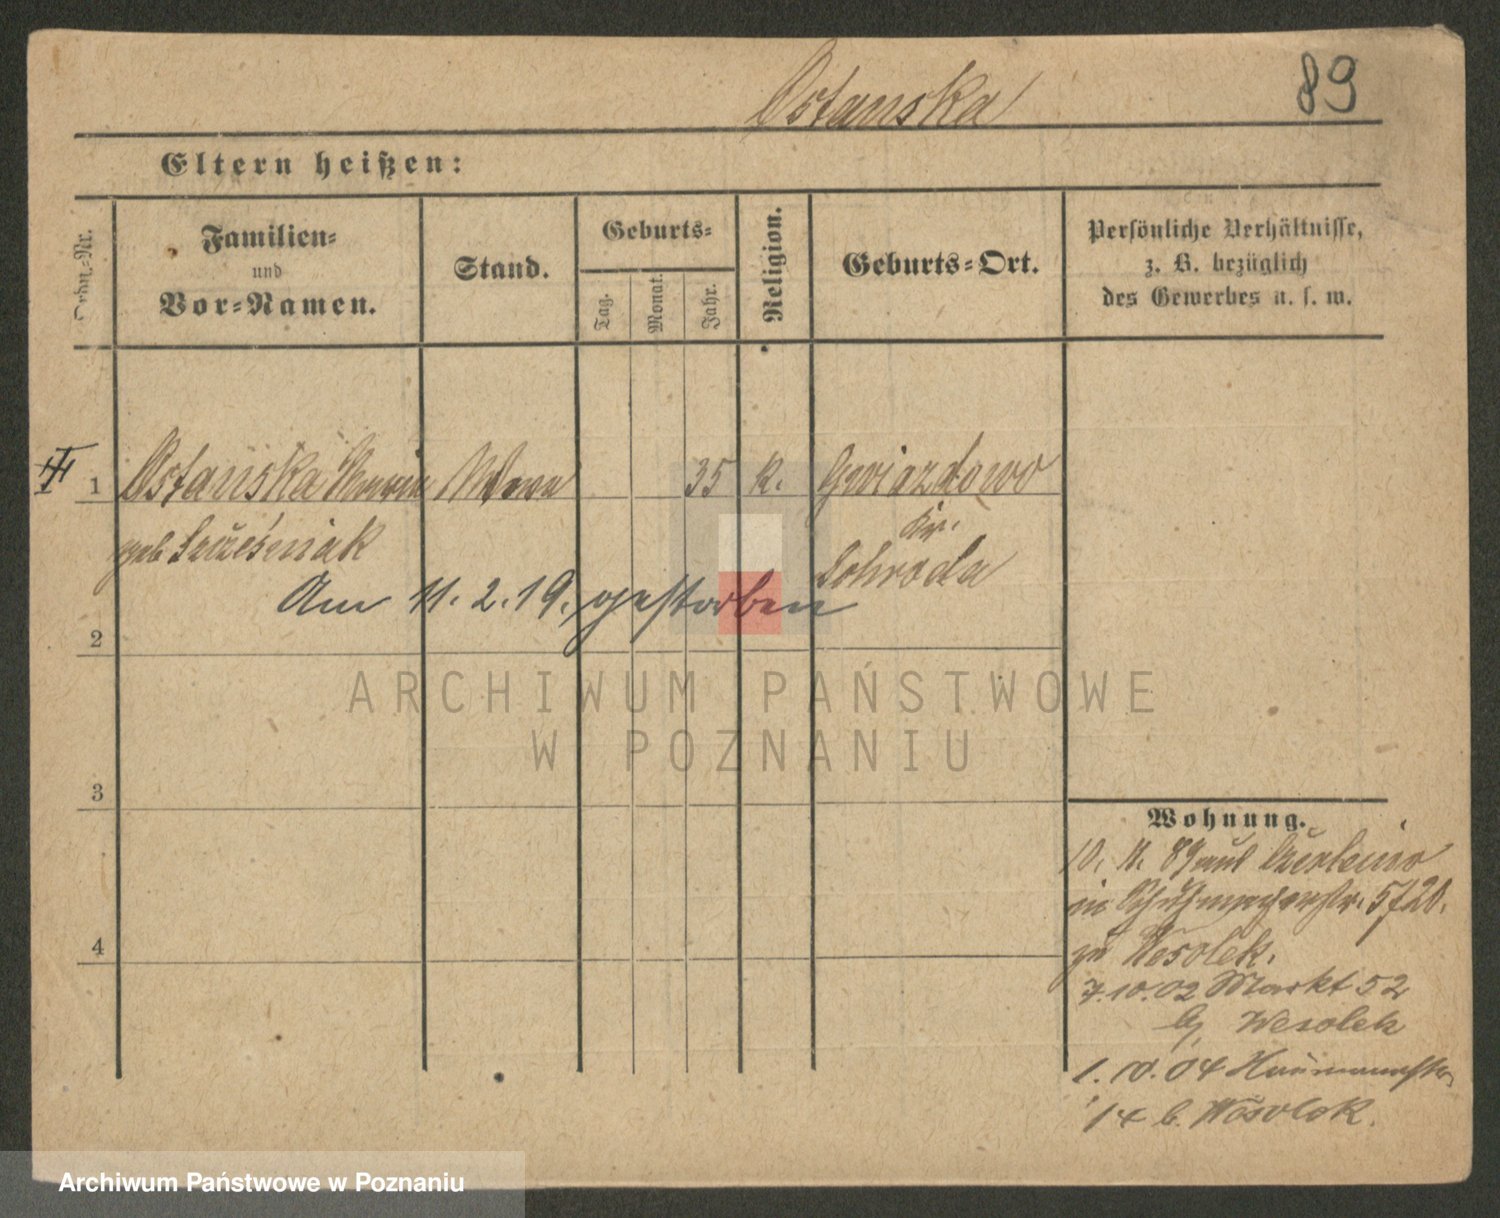 Ostanska
89
Eltern heißen:
Ordn.-Nr.
Familien-
und
Vor-Namen.
Stand.
Geburts-
Tag.
Monat.
Jahr.
Religion.
Geburts-Ort.
Persönliche Verhältnisse,
z. B. bezüglich
des Gewerbes u. s. w.
1 Ostanska 35 k. Gwiazdowo
geb. Kr.
Schroda
Am 11. 2. 19. gestorben
2
3
4
ARCHIWUM PAŃSTWOWE
W POZNANIU
Wohnung.
10. 11. 89 aus
in Schuhmacherstr. 5/20.
zu Wesolek.
7.10.02 Markt 52
b/ Wesolek
1. 10. 04
14 b. Wesolek.
Archiwum Państwowe w Poznaniu